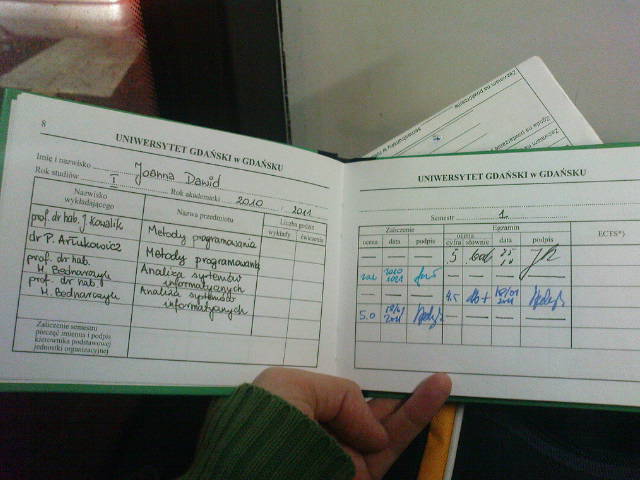 8
UNIWERSYTET GDAŃSKI w GDAŃSKU
Imię i nazwisko Joanna Dawid
Rok studiów I Rok akademicki 2010 2011
Nazwisko wykładającego
Nazwa przedmiotu
Liczba godzin
wykłady ćwiczenia
prof. dr hab. J. Kowalik
Metody programowania
dr P. Artukowicz
Metody programowania
prof. dr hab.
M. Bednarczyk
Analiza systemów
informatycznych
prof. dr hab.
M. Bednarczyk
Analiza systemów
informatycznych
Zaliczenie semestru
pieczęć imienna i podpis
kierownika podstawowej
jednostki organizacyjnej
UNIWERSYTET GDAŃSKI w GDAŃSKU
Semestr 1
Zaliczenie
Egzamin
ECTS*)
ocena data podpis
ocena
cyfra słownie
data podpis
5
zal 2010
2011
4.5 db+
2011
5.0
2011